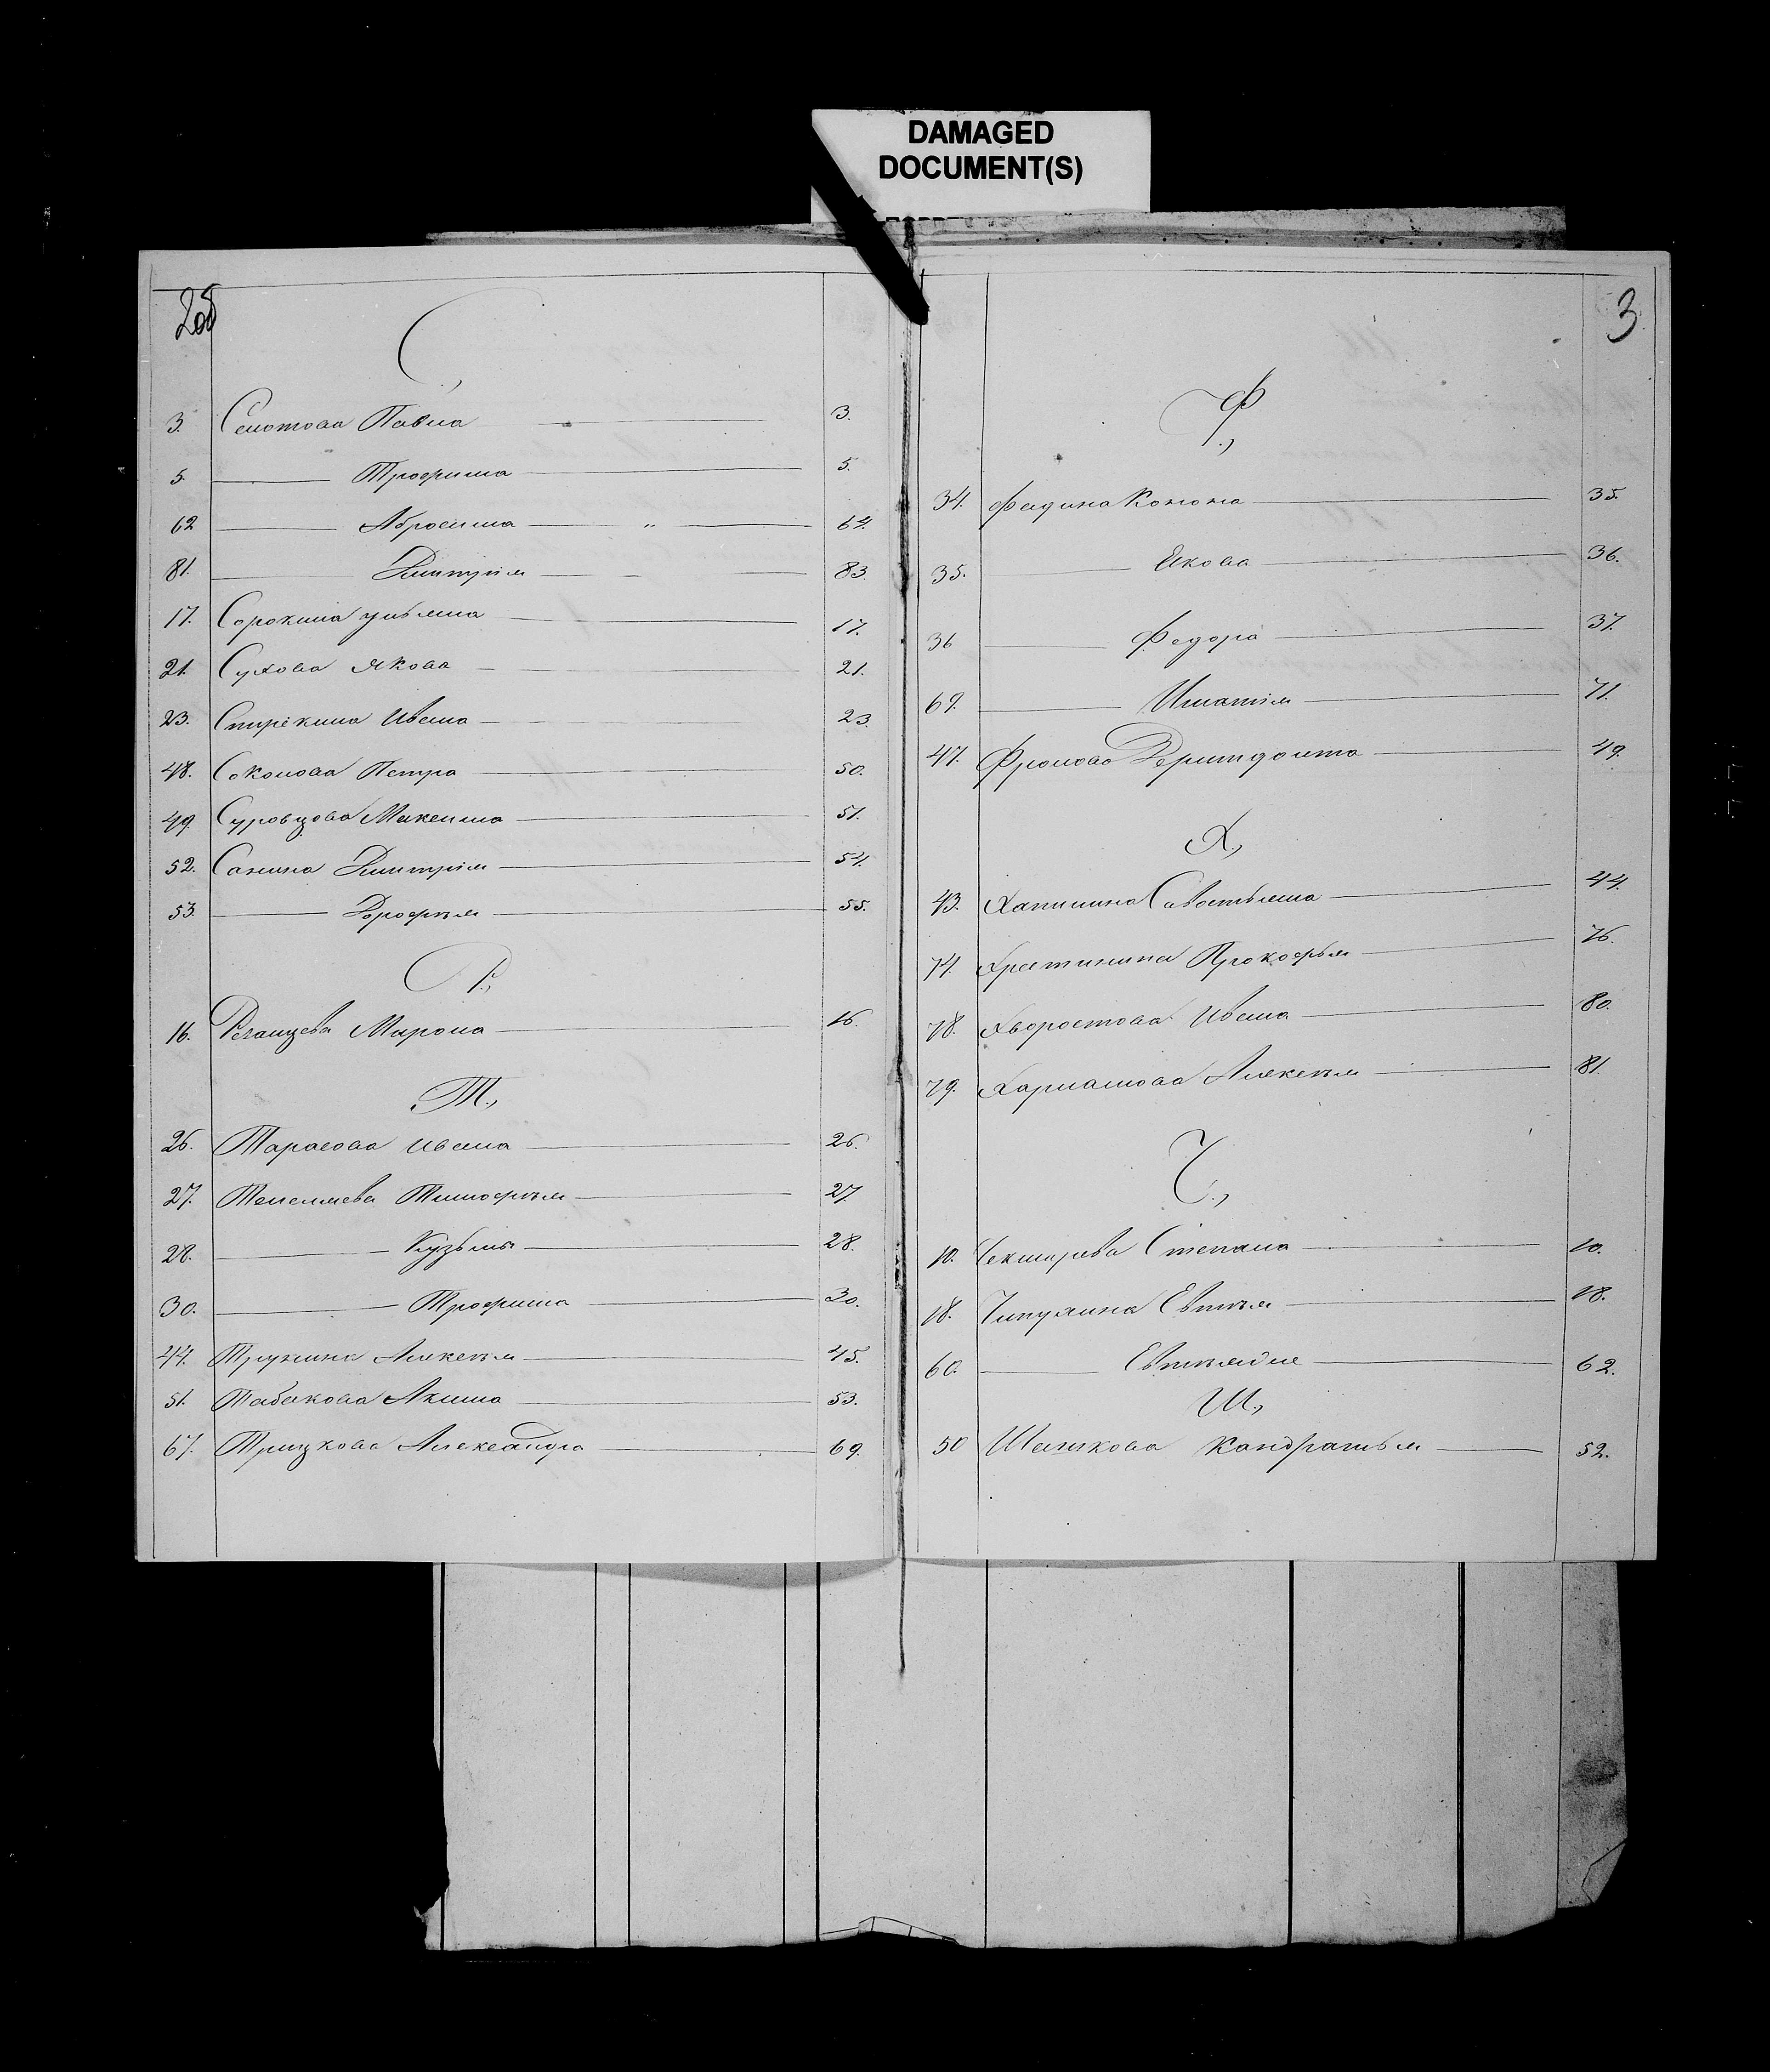 DAMAGED
DOCUMENT(S)
2об
С.,
3. Сенотова Павла 3.
5. Трофима 5.
62 Абросима " 64.
81. Дмитрія 83.
17. Сорокина 17.
21. Сухова Якова 21.
23. Стрѣкина Ивана 23.
48. Соколова Петра 50.
49. Суровцова Максима 51.
52. Санина Дмитрія 54.
53. Дорофѣя 55.
Р.,
16. Резанцева Мирона 16.
Т.,
26. Тарасова Ивана 26.
27. Тимофѣя 27.
28. Кузьмы 28.
30. Трофима 30.
44. Трунина Алексѣя 45.
51. Табакова Акима 53.
67. Трицкова Александра 69.
3
Ф.,
34. Федина Конона 35.
35. Якова 36.
36 Федора 37.
69. Игнатія 71.
47. Фролова Ферапонта 49.
Х.,
43. Хапилина Савостьяна 44.
74. Прокофья 76.
78. Хворостова Ивана 80.
79. Харламова Алексѣя 81.
Ч.,
10. Чекмарева Степана 10.
18. Чипулина 18.
60. 62.
Ш.,
50 Шашкова Кандратья 52.